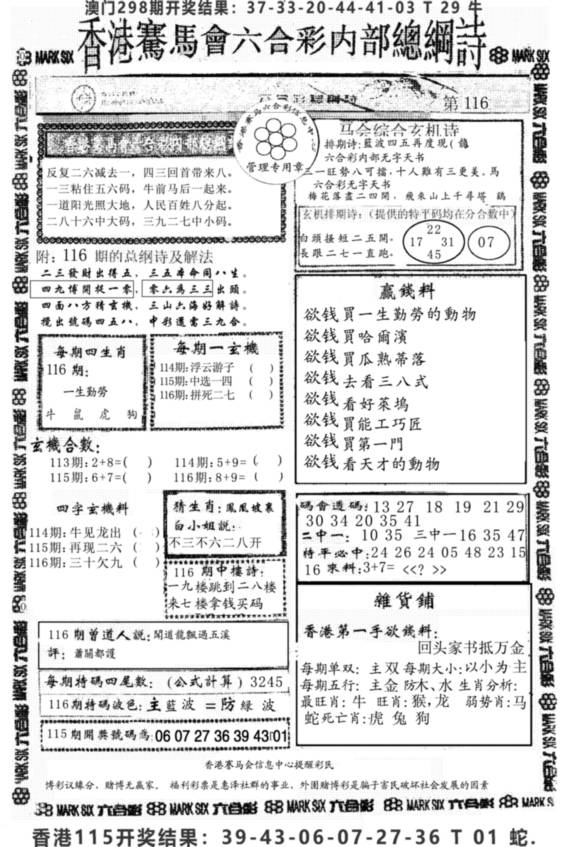 澳门298期开奖结果：37-33-20-44-41-03 T 29 牛
香港騫馬會六合彩内部總綱詩
MARK SIX
MARK SIX
第 116
管理专用章
反复二六减去一，四三回首带来八。
一三粘住五六码，牛前马后一起来。
一道阳光照大地，人民百姓八分起。
二八十六中大码，三九二七中小码。
附：116 期的总纲诗及解法
二三發財出得五，三五本命同八生。
四九博開提一零，零六為三三出頭。
四面八方猜玄機，三山六海好解詩。
攪出號碼四五八，中彩還當三九合。
马会综合玄机诗
排期诗：藍波四五再度现（龍
六合彩内部无字天书
三一旺勢八可擋，十人難有三更美。馬
六合彩无字天书
梅花落盡二四開，飛來山上千尋塔 鷄
玄机排期诗：（提供的特平码均在分合數中）
白頭搔短二五開。
長跟二七一直跑。
22
17 31
45
07
每期四生肖
116 期：
一生勤勞
牛 鼠 虎 狗
每期一玄機
114期：浮云游子 （ ）
115期：中选一四 （ ）
116期：拼死二七 （ ）
玄機合數：
113期：2+8=( ) 114期：5+9=( )
115期：6+7=( ) 116期：8+9=( )
四字玄機料
114期：牛见龙出 （ ）
115期：再现二六（ ）
116期：三十欠九（ ）
猜生肖：鳳凰坡裏
白小姐説：
不三不六二八开
116 期中樓詩：
一九楼跳到二八楼
来七楼拿钱买码
116 期曾道人説：聞道龍飄過五溪
評：蕭關都護
每期特碼四尾數：（公式計算）3245
116期特碼波色：主藍波 二防綠 波
115 期開奬號碼為：06 07 27 36 39 43 01
赢錢料
欲钱買一生勤勞的動物
欲钱買哈爾濱
欲钱買瓜熟蒂落
欲钱去看三八式
欲钱看好莱塢
欲钱買能工巧匠
欲钱買第一門
欲钱看天才的動物
碼會選碼：13 27 18 19 21 29
30 34 20 35 41
二中一： 10 35 三中一 16 35 47
特平必中：24 26 24 05 48 23 15
16 來料：3+7= <<? >>
雜貨鋪
香港第一手欲錢料：
回头家书抵万金
每期单双：主双 每期大小：以小为主
每期五行：主金 防木、水 生肖分析：
最旺肖：牛 旺肖：猴，龙 弱势肖：马
蛇死亡肖：虎 兔 狗
香港赛马会信息中心提醒彩民
博彩议缘分，赌博无赢家。 福利彩票是惠泽社群的事业，外圍赌博彩是骗子害民破坏社会发展的因素
MARK SIX 六合彩 MARK SIX 六合彩 MARK SIX 六合彩 MARK SIX 六合彩 MARK SIX
香港115开奖结果：39-43-06-07-27-36 T 01 蛇.